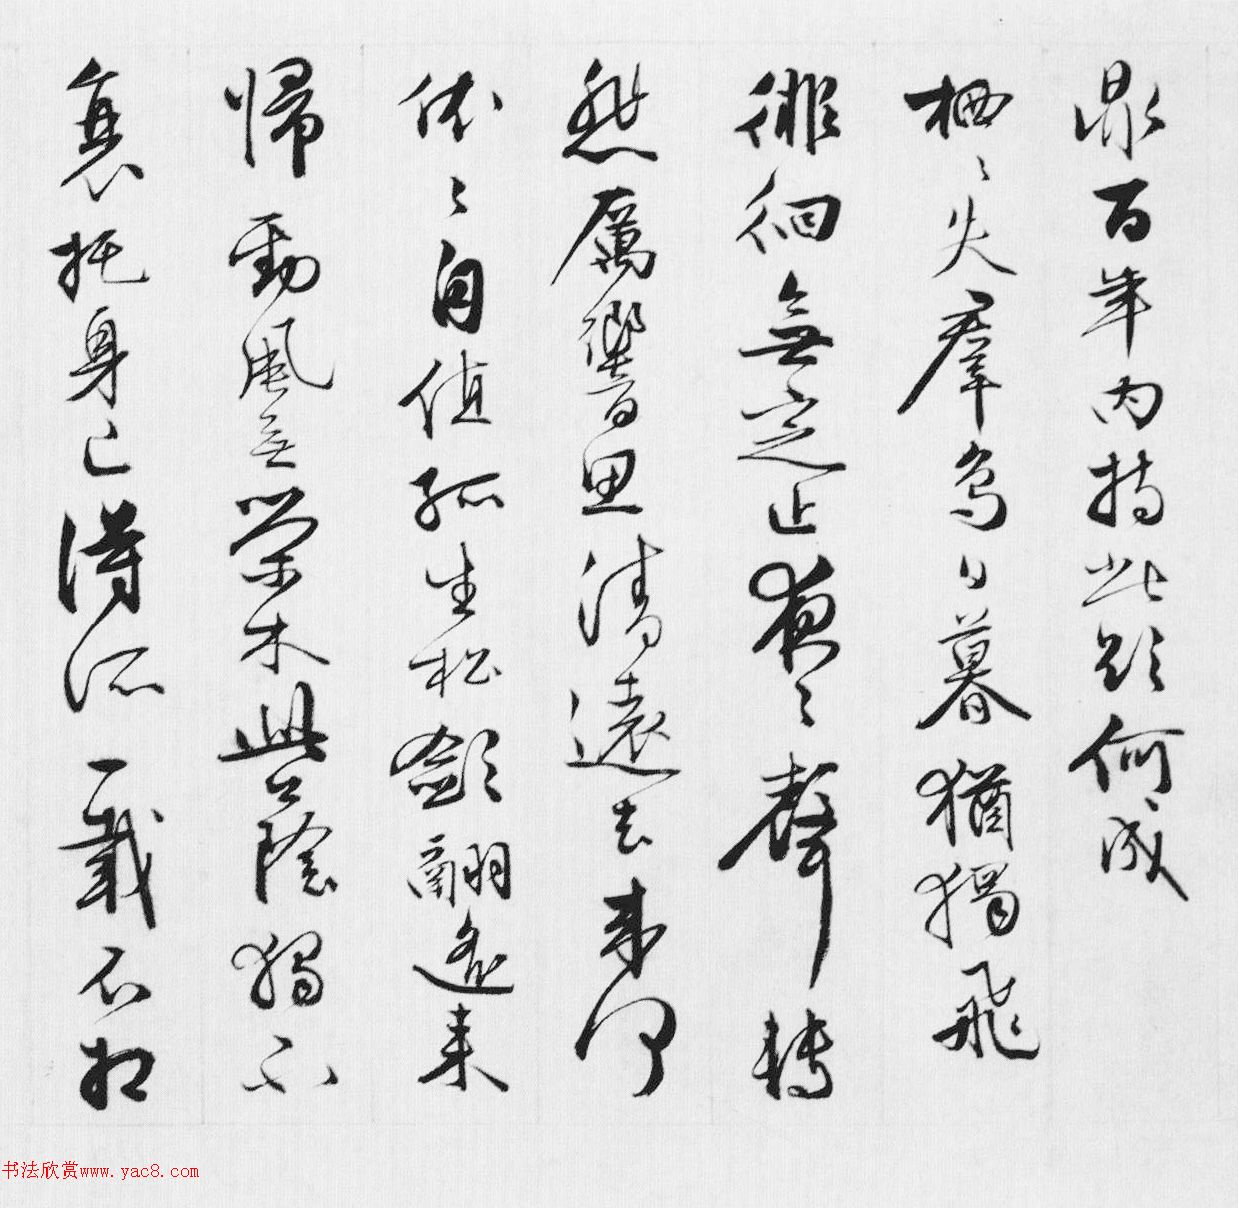 鼎百年內持此欲何成
栖〻失羣鳥日暮猶獨飛
徘徊無定止夜〻聲轉
悲厲響思清遠去來何
依〻自值孤生松斂翮遙來
歸勁風無榮木此蔭獨不
衰托身已得所千載不相
书法欣赏www.yac8.com